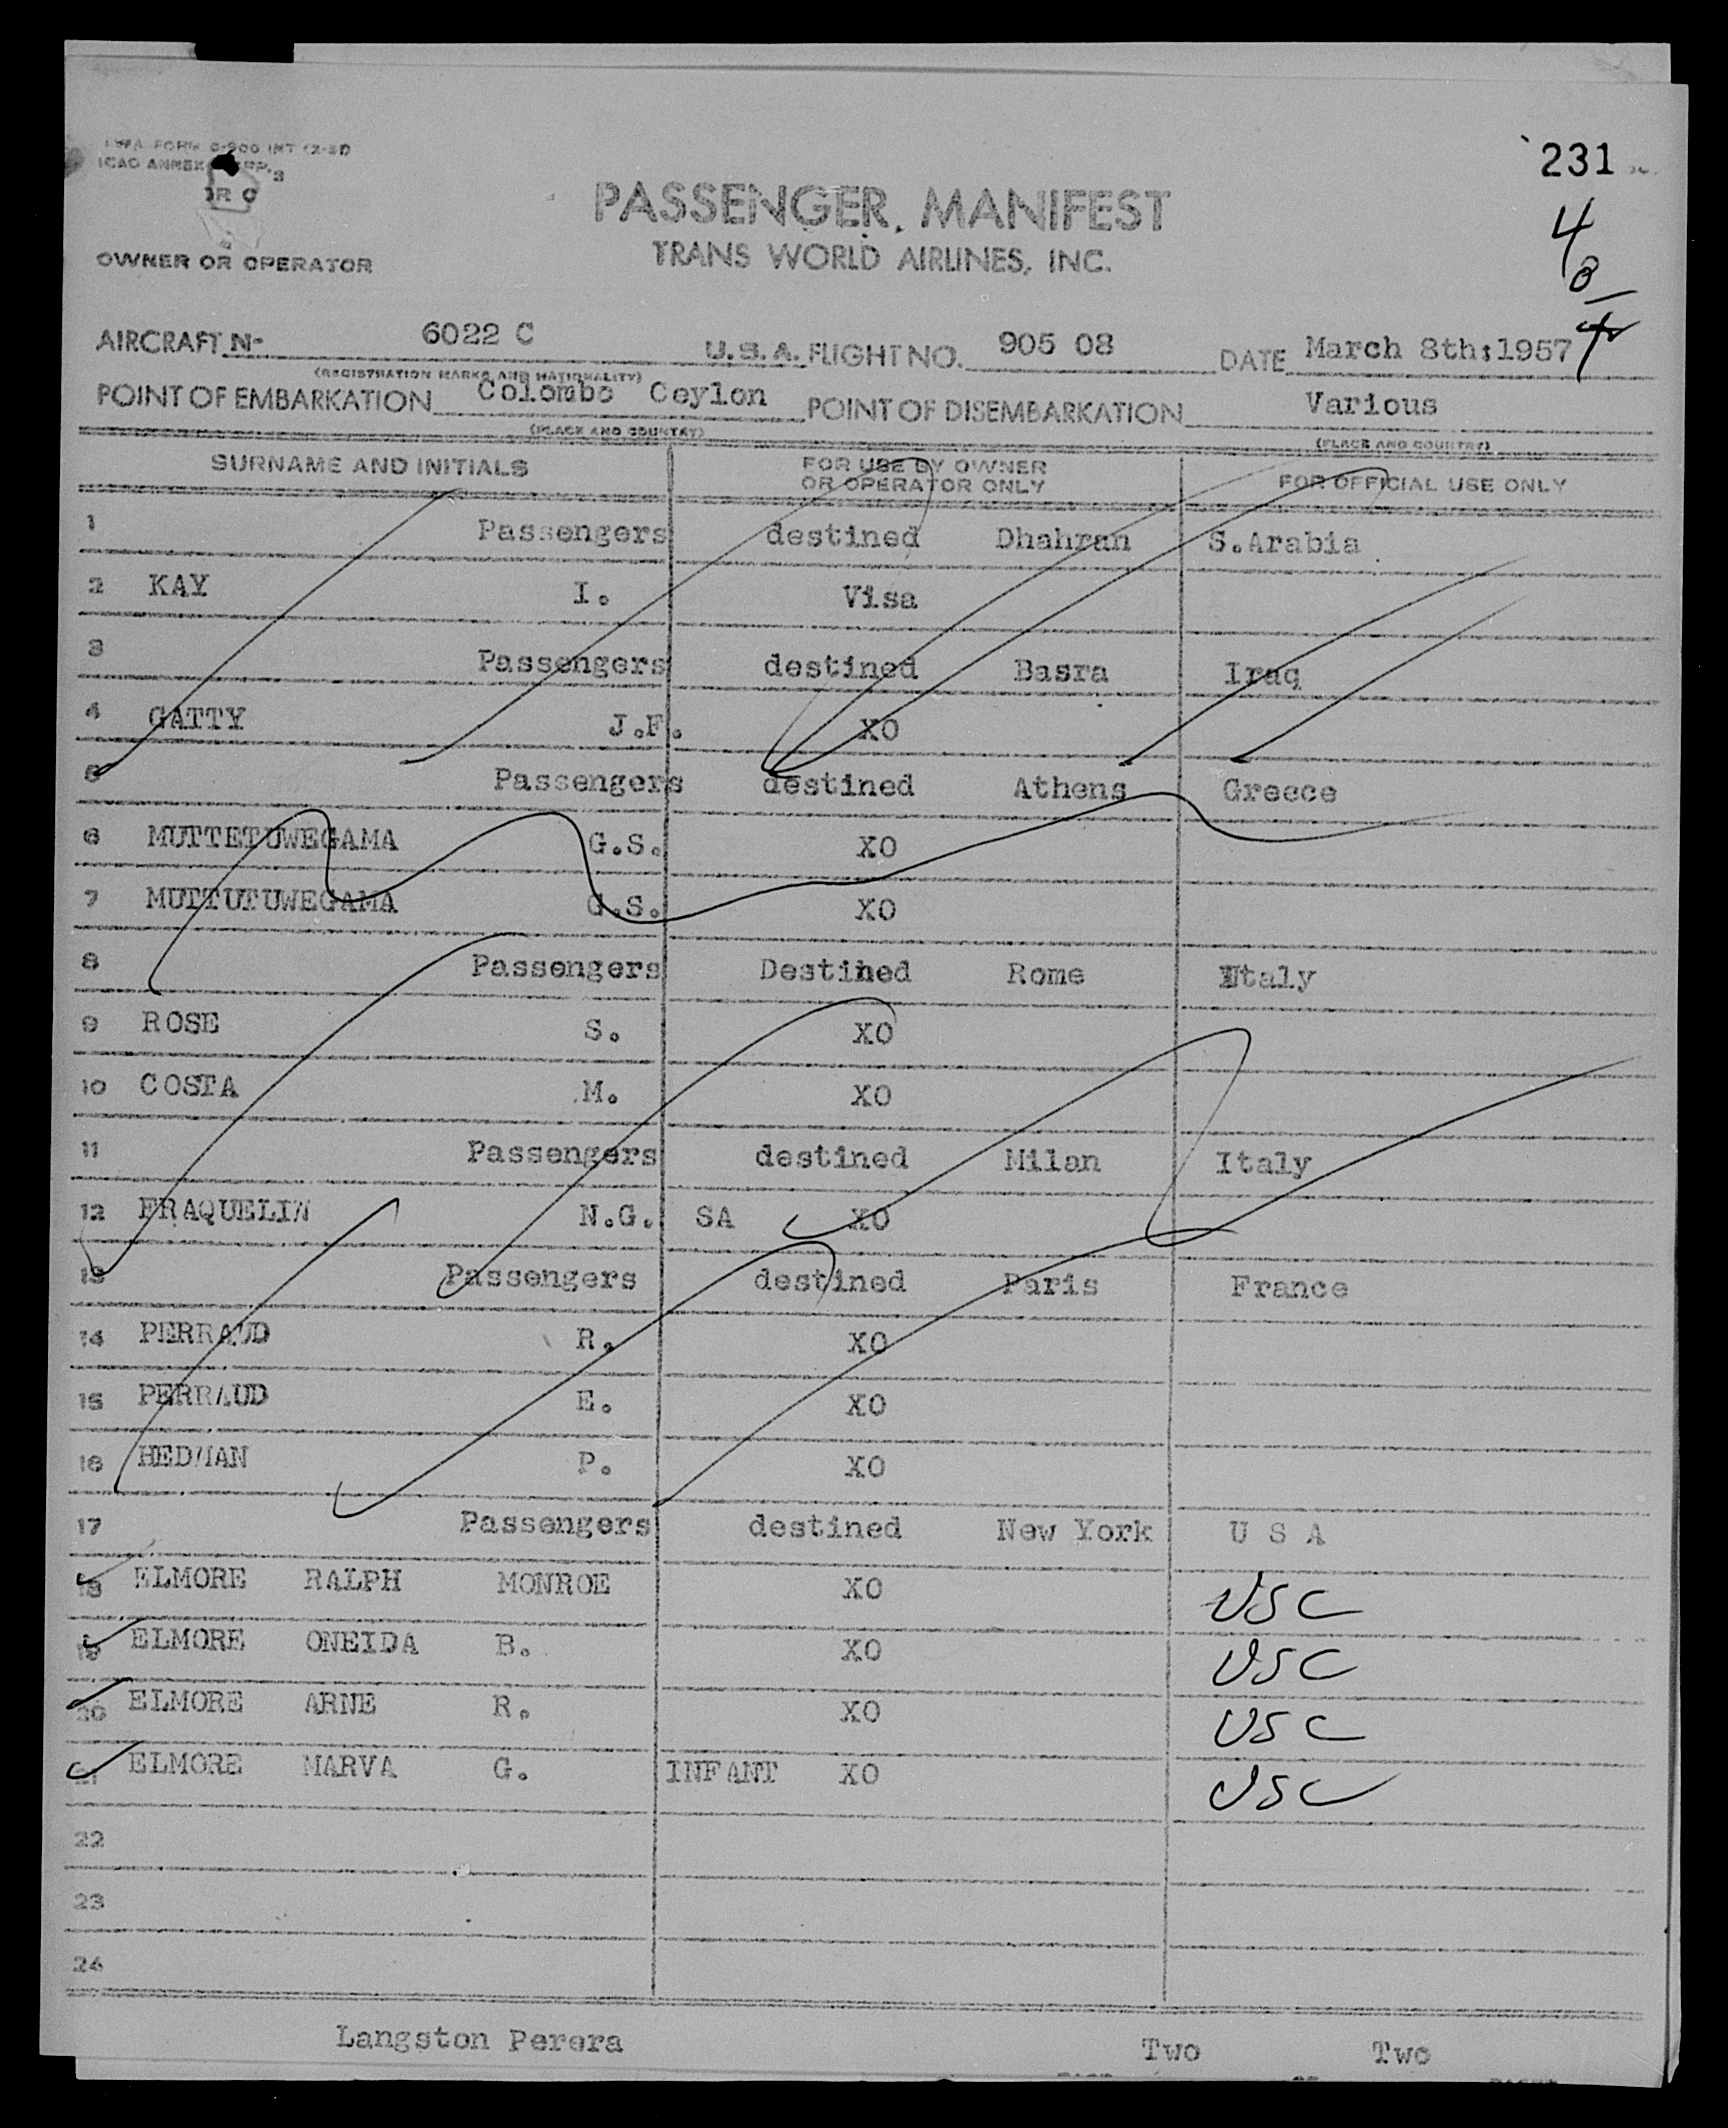 TWA FORM O-900 INT
ICAO ANNEX
231
PASSENGER MANIFEST
TRANS WORLD AIRLINES, INC.
OWNER OR OPERATOR
4
AIRCRAFT N- 6022 C U.S.A. FLIGHT NO. 905 08 DATE March 8th:1957
(REGISTRATION MARKS AND NATIONALITY)
POINT OF EMBARKATION Colombo Ceylon POINT OF DISEMBARKATION Various
(PLACE AND COUNTRY) (PLACE AND COUNTRY)
SURNAME AND INITIALS FOR USE BY OWNER OR OPERATOR ONLY FOR OFFICIAL USE ONLY
1 Passengers destined Dhahran S.Arabia
2 KAY I. Visa
3 Passengers destined Basra Iraq
4 GATTY J.F. XO
5 Passengers destined Athens Greece
6 MUTTETUWEGAMA G.S. XO
7 MUTTUTUWEGAMA G.S. XO
8 Passengers Destined Rome Italy
9 ROSE S. XO
10 COSTA M. XO
11 Passengers destined Milan Italy
12 FRAQUELIN N.G. SA XO
13 Passengers destined Paris France
14 PERRAUD R. XO
15 PERRAUD E. XO
16 HEDMAN P. XO
17 Passengers destined New York U S A
18 ELMORE RALPH MONROE XO USC
19 ELMORE ONEIDA B. XO USC
20 ELMORE ARNE R. XO USC
21 ELMORE MARVA G. INFANT XO USC
22
23
24
Langston Perera Two Two